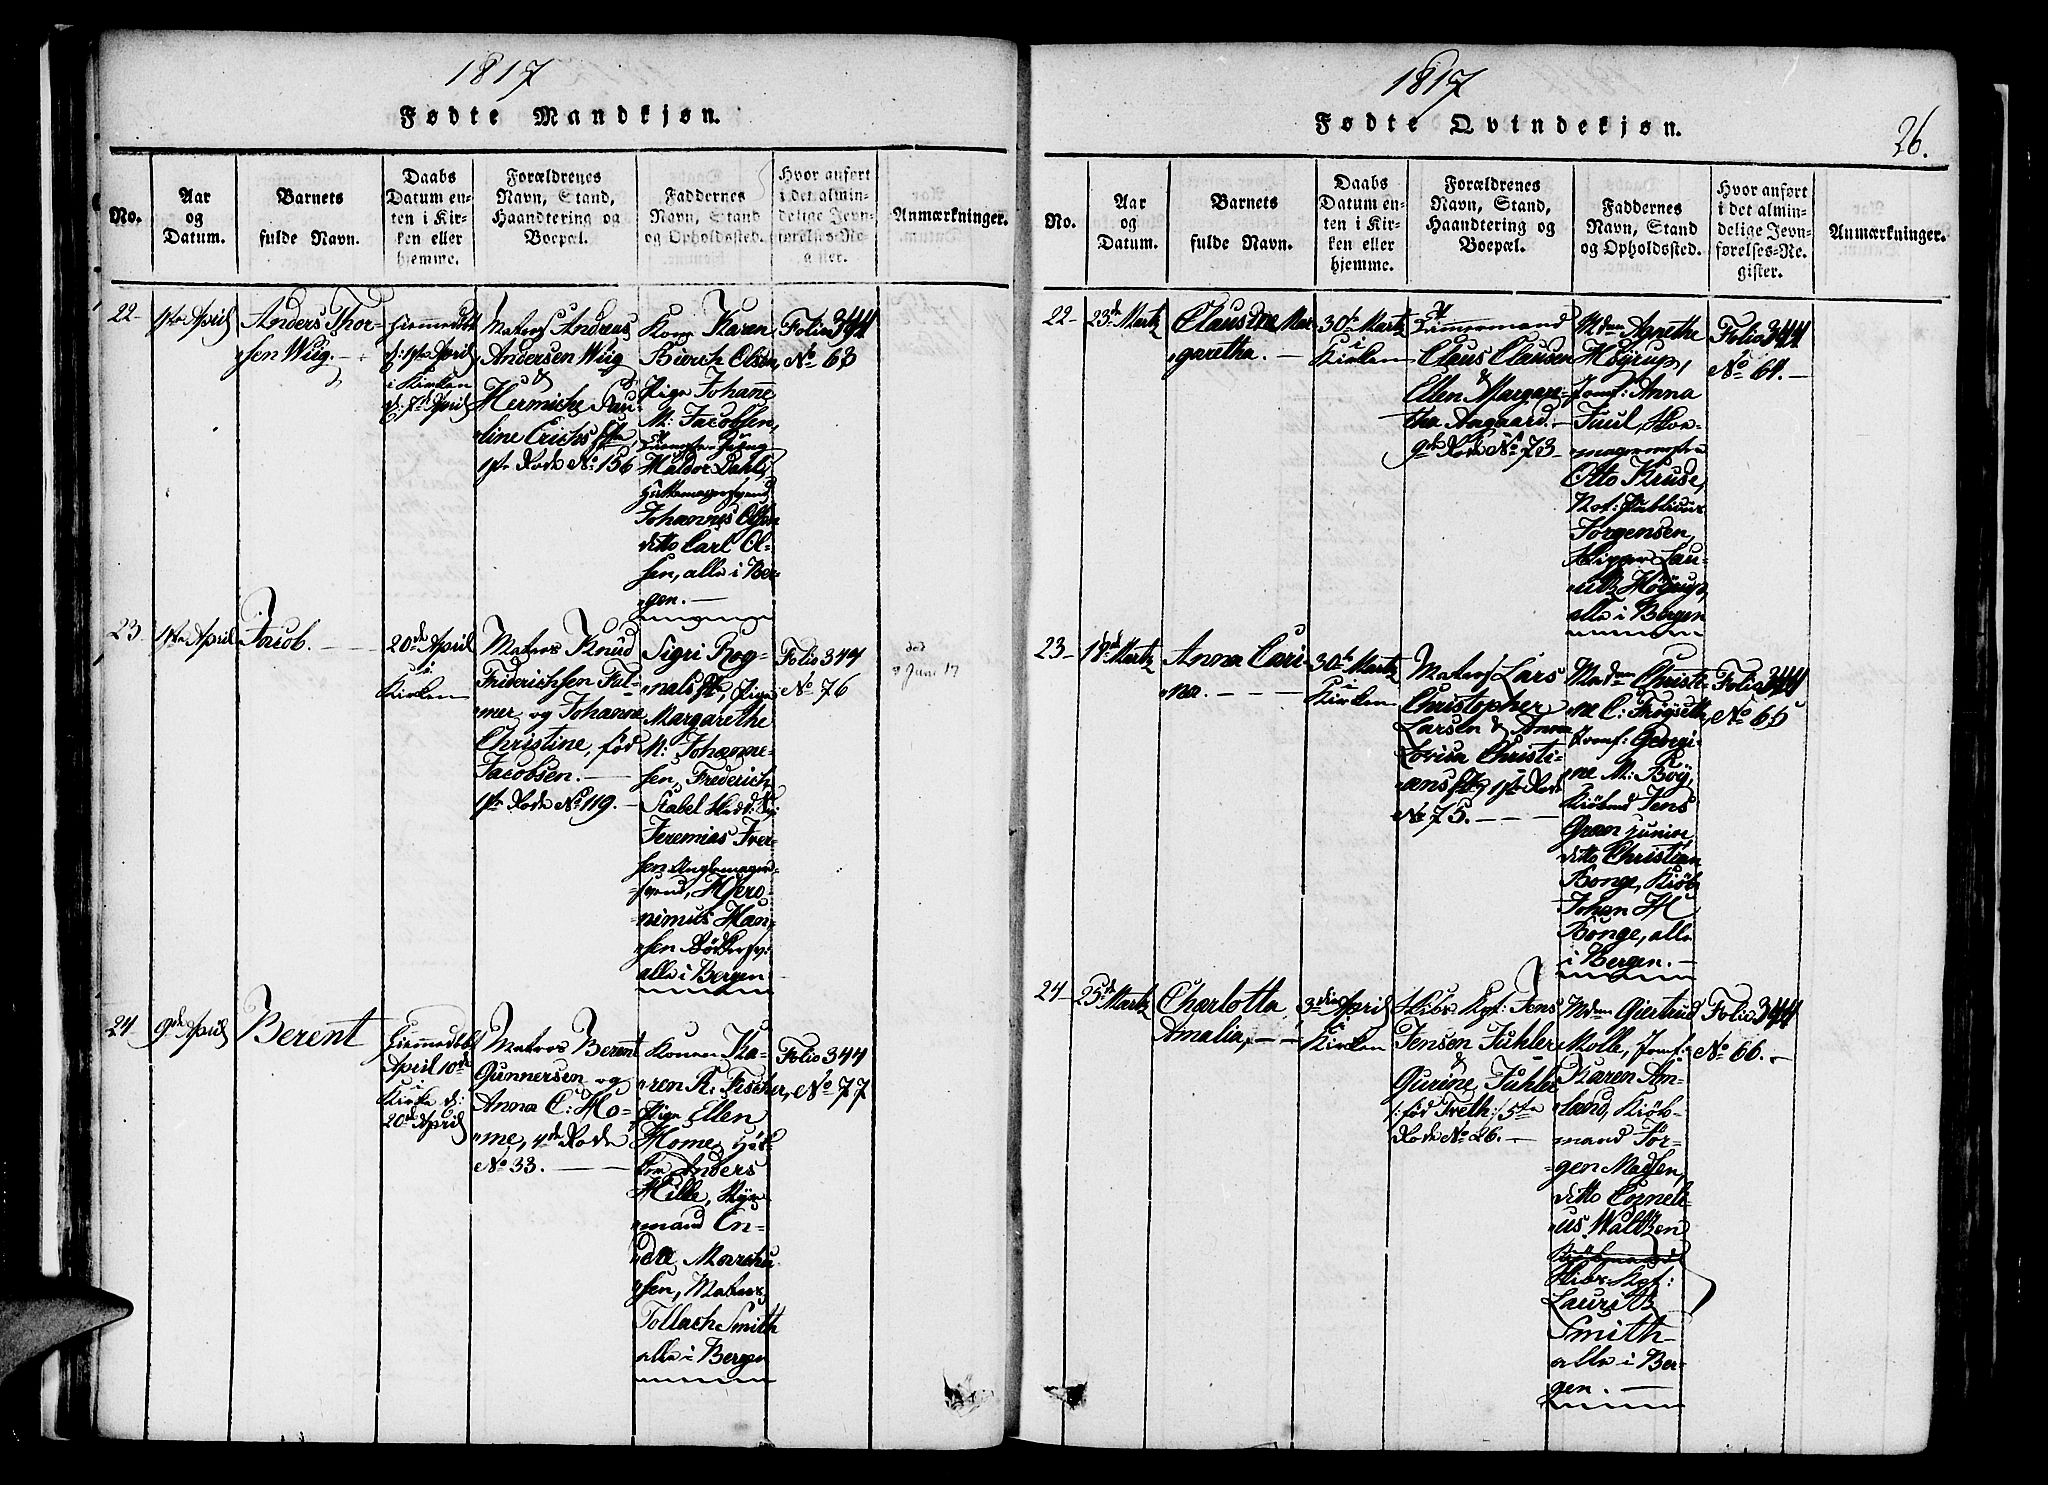 1817
Fødte Mandkjøn.
No.
Aar
og
Datum.
Barnets
fulde Navn.
Daabs
Datum en-
ten i Kir-
ken eller
hjemme.
Forældrenes
Navn, Stand,
Haandtering og
Boepæl.
Faddernes
Navn, Stand
og Opholdssted.
Hvor anført
i det almin-
delige Jevn-
førelses-Re-
gister.
Anmærkninger.
22-
1ste April
Anders Thor-
sen Wiig.
Hiemmedøbt
d: 1ste April
i Kirken
d: 7de April
Matros Andreas
Andersen Wiig
&
Hermiche Pau-
line Erichs
1ste Rode No 156
Kone Karen
Bierch Olsen,
Pige Johanne
M: Jacobsen,
Haldor Dahl,
Johannes Olsen
ditto Carl Ol-
sen, alle i Ber-
gen.
Folio 344
No 63
23
1ste April
Jacob.
20de April
i
Kirken
Matros Knud
Friderichsen Fal-
mer og Johanne
Christine, fød
Jacobsen.
1ste Rode No 119.
Sigri Rog-
nals Pige
Margarethe
M: Johanne-
sen, Frederich
Stabel
Jeremias Iver-
sen
svend, Hjero-
nimus Han-
sen Bødkersv:
alle i Bergen
Folio 344
No 76
død
Juni 17
24
9de April
Berent
Hiemmedøbt
April 10de
i
Kirke d:
20de April
Matros Berent
Gunnersen og
Anna C: Ho-
me, 4de Rode
No 33.
Konen Ka-
ren R: Fischer,
Pige Ellen
Home,
Anders
Hille,
mand En-
dre Marchu-
sen, Matros
Tollach Smith
alle i Bergen
Folio 344
No 77
1817
Fødte Qvindekjøn.
26.
No.
Aar
og
Datum.
Barnets
fulde Navn.
Daabs
Datum en-
ten i Kir-
ken eller
hjemme.
Forældrenes
Navn, Stand,
Haandtering og
Boepæl.
Faddernes
Navn, Stand
og Opholdssted.
Hvor anført
i det almin-
delige Jevn-
førelses-Re-
gister.
Anmærkninger.
22-
23de Martz
Clausine Mar-
garetha.
30te Martz
i
Kirken
Timmermand
Claus Clausen
&
Ellen Margare-
tha Aagaard.
9de Rode No 73
Mdam Agnethe
Høyrup,
Jomf: Anna
Juul, Skoe-
magermester
Otto Kruse,
Not: Publicus
Jørgensen,
Skipper Lau-
ritz Høyrup,
alle i Bergen
Folio 344
No 61.
23-
18de Martz
Anna Cari-
na.
30te Martz
i
Kirken
Matros Lars
Christopher
Larsen & Anna
Lovisa Christi-
ans 1ste Rode
No 75.
Madam Christi-
ne C: Frøyseth,
Jomf: Georgi-
ne M: Bøy,
Kiøbmd Jens
Gran junior
ditto Christian
Bonge, Kiøb
Johan H
Bonge, alle
i Bergen.
Folio 344
No 65
24-
25de Martz
Charlotta
Amalia,
3die April
i
Kirken
Skibs Kpt: Jens
Jensen Fuhler
&
Gurine Fuhler
/: fød Treth:/ 5te
Rode No 26.
Mdam Giertrud
Molle, Jomf:
Karen Am-
land, Kiøb-
mand Jør-
gen Madsen,
ditto Corneli-
us Waltzen
Kiøbmand
Skibs-Kpt:
Lauritz
Smith
alle i Ber-
gen.
Folio 344
No 66.